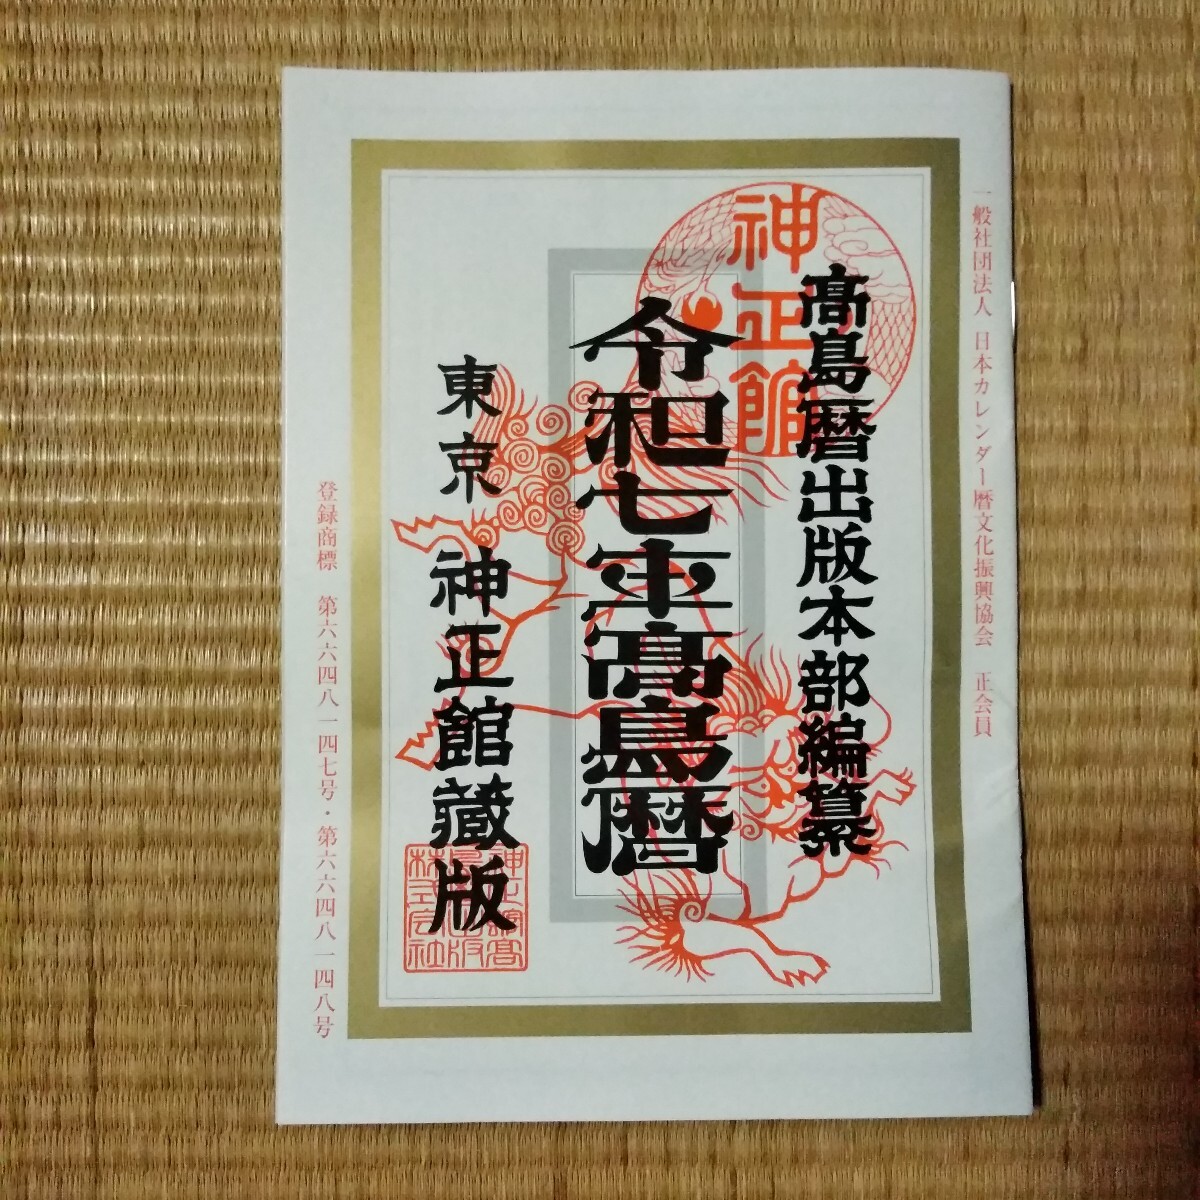 一般社団法人 日本カレンダー暦文化振興協会 正会員
神正館
高島暦出版本部編纂
令和七年高島暦
東京 神正館藏版
登録商標 第六六四八一四七号・第六六四八一四八号